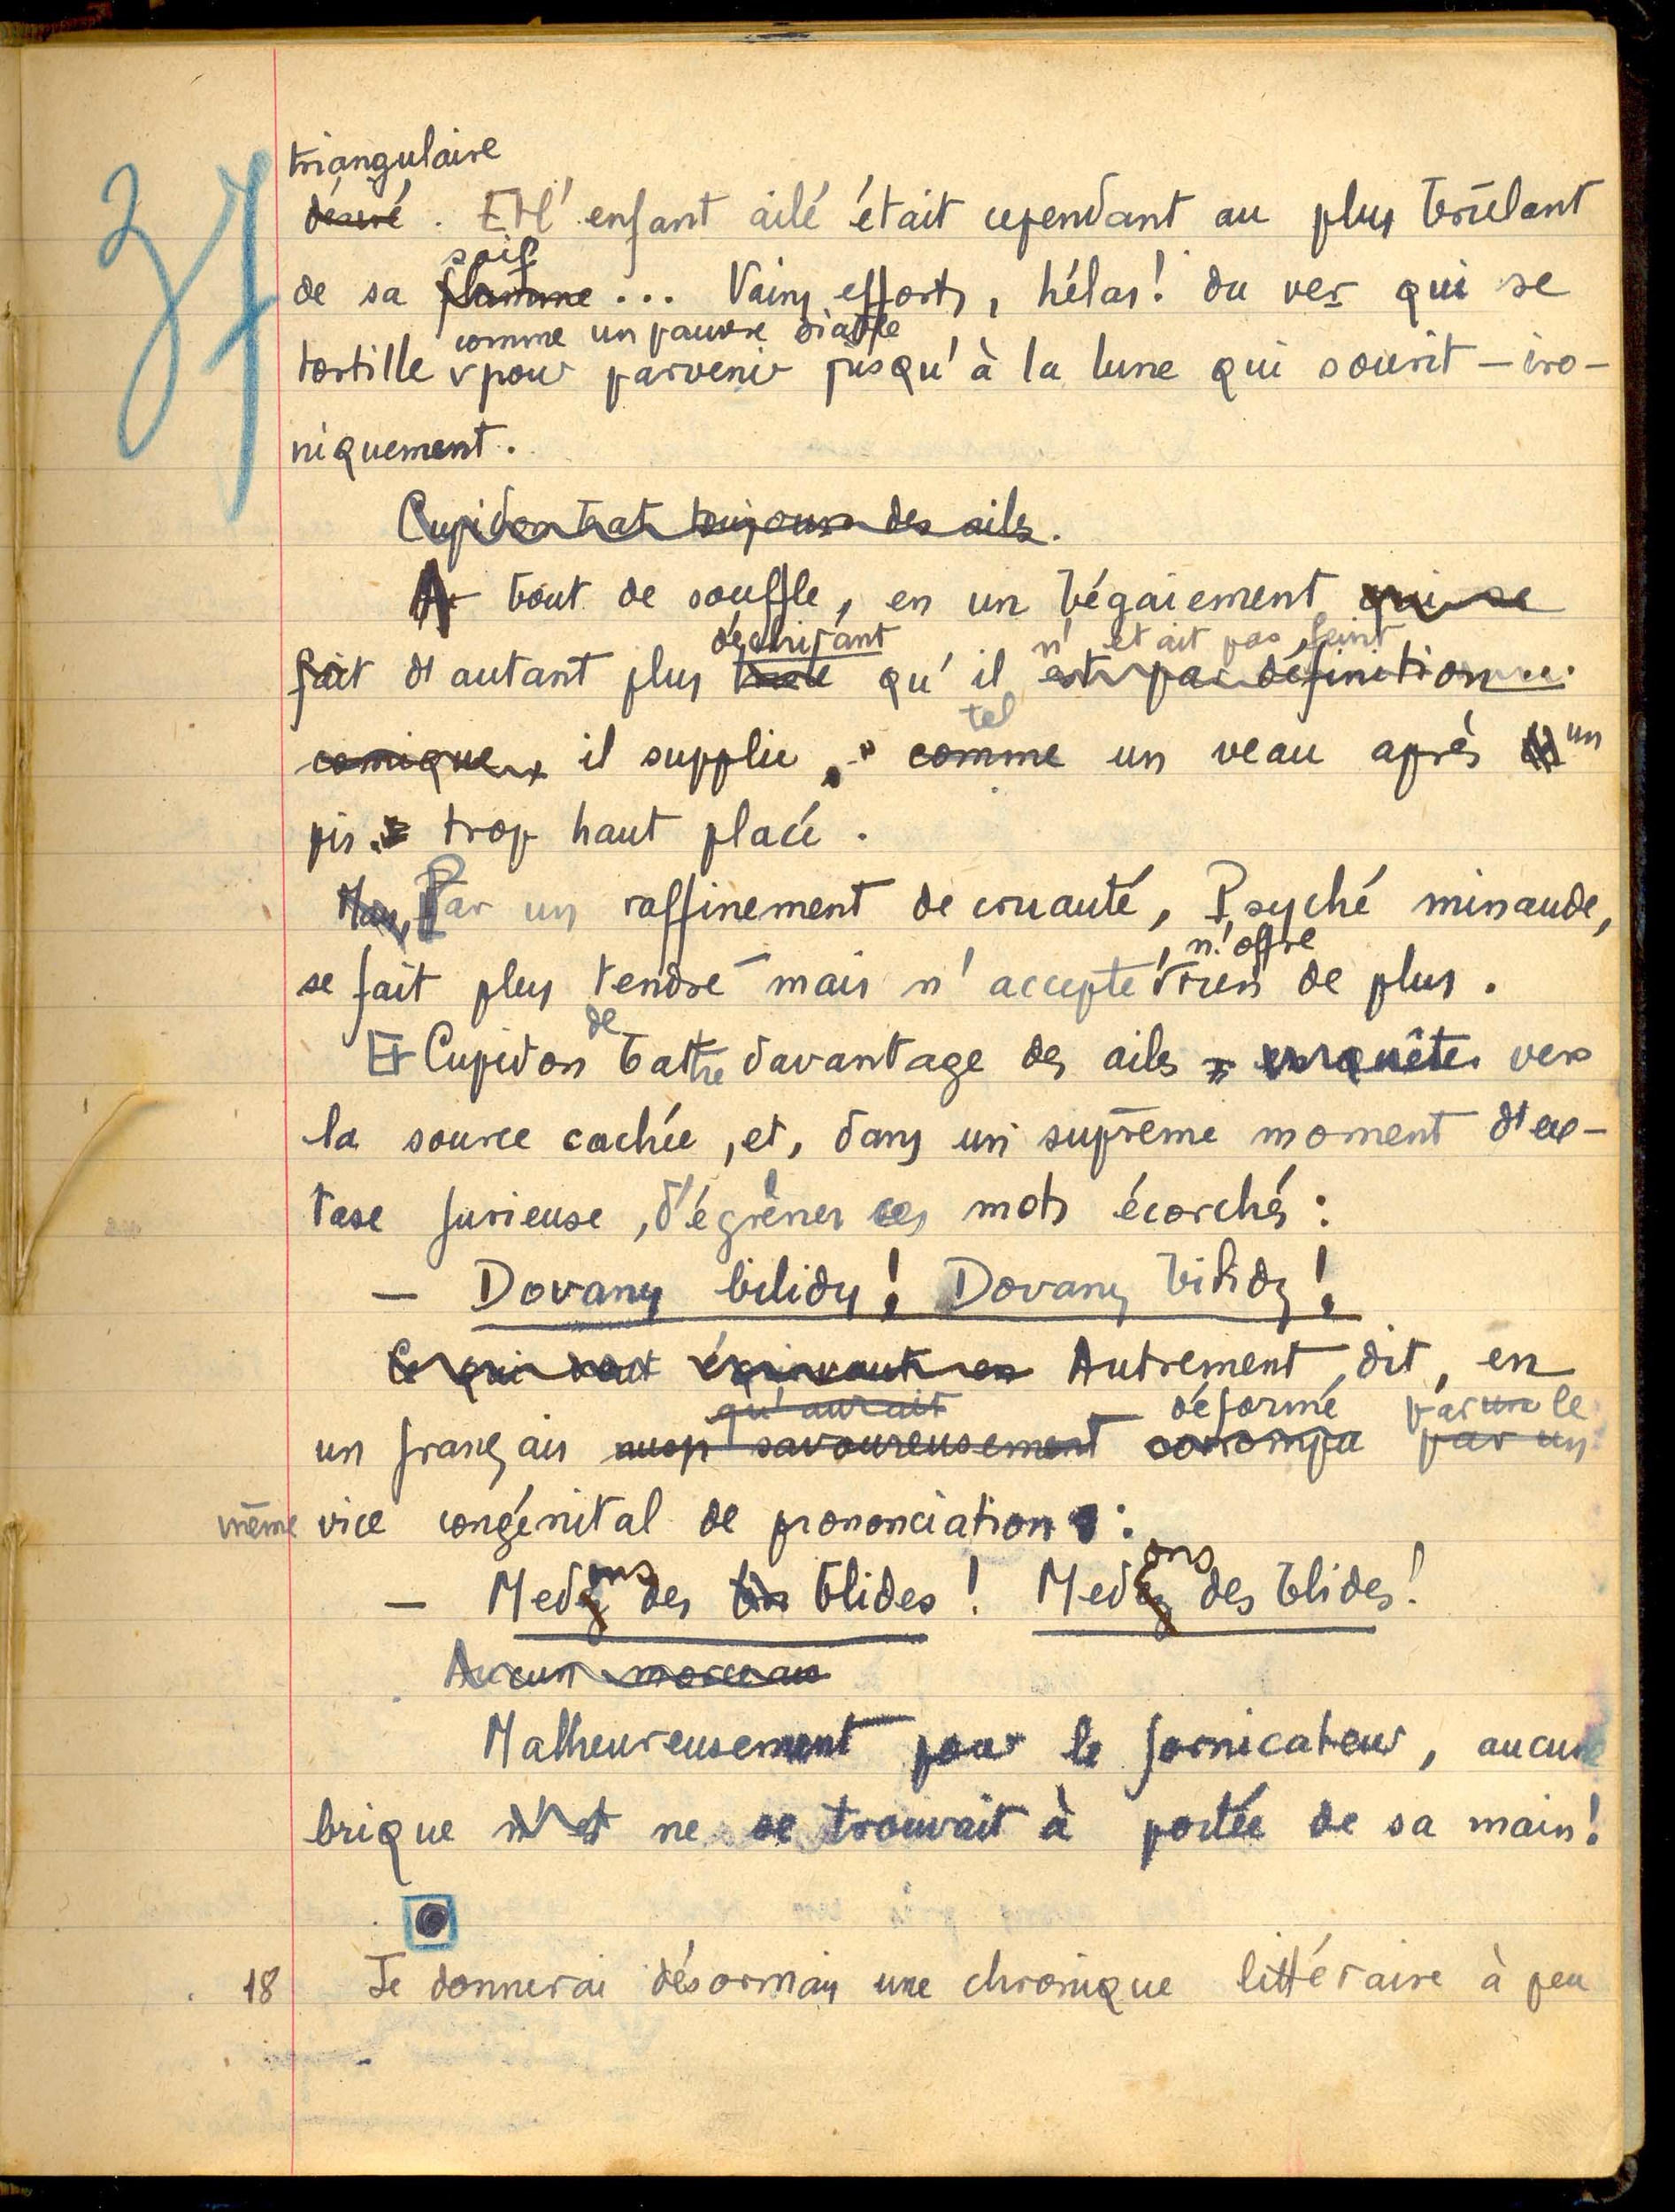 37
triangulaire
désiré. Et l'enfant ailé était cependant au plus brûlant
soif
de sa flamme... Vains efforts, hélas! du ver qui se
comme un pauvre diable
tortille pour parvenir jusqu'à la lune qui sourit – iro-
niquement.
Cupidon bat toujours des ailes.
A bout de souffle, en un bégaiement qui se
déchirant n'était pas feint
fait d'autant plus qu'il est par définition
tel
comique, il supplie, comme un veau après un
pis trop haut placé.
Par un raffinement de cruauté, Psyché minaude,
, n'offre
se fait plus tendre mais n'accepte rien de plus.
de
Et Cupidon battre davantage des ailes en quête vers
la source cachée, et, dans un suprême moment d'ex-
tase furieuse, d'égrêner ces mots écorchés :
– Dovany bilidy! Dovany bilidy!
Ce qui vaut équivaut en Autrement dit, en
qu'aurait déformé par une le
un français aussi savoureusement corrompu par un
même vice congénital de prononciation :
ons ons
– Medez des blides! Medez des blides!
Aucun morceau
Malheureusement pour le fornicateur, aucune
brique n'est ne se trouvait à portée de sa main!
18 Je donnerai désormais une chronique littéraire à peu